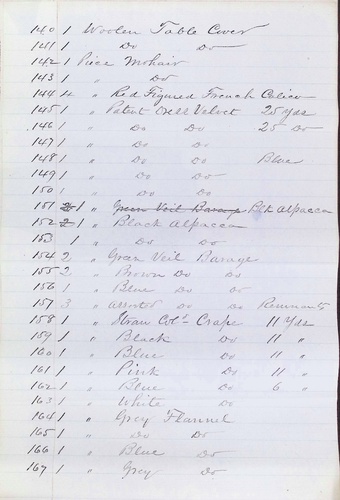 140 1 Woolen Table Cover
141 1 Do Do
142 1 Piece Mohair
143 1 " Do
144 4 " Red Figured French Calico
145 1 " Patent Dress Velvet 25 Yds
146 1 " Do Do 25 Do
147 1 " Do Do
148 1 " Do Do Blue
149 1 " Do Do
150 1 " Do Do
151 1 " Green Veil Barage Blk Alpacca
152 1 " Black Alpacca
153 1 " Do Do
154 2 " Green Veil Barage
155 2 " Brown Do Do
156 1 " Blue Do Do
157 3 " Assorted Do Do Remnants
158 1 " Straw Cold Crape 11 Yds
159 1 " Black Do 11 "
160 1 " Blue Do 11 "
161 1 " Pink Do 11 "
162 1 " Blue Do 6 "
163 1 " White Do
164 1 " Grey Flannel
165 1 " Do Do
166 1 " Blue Do
167 1 " Grey Do